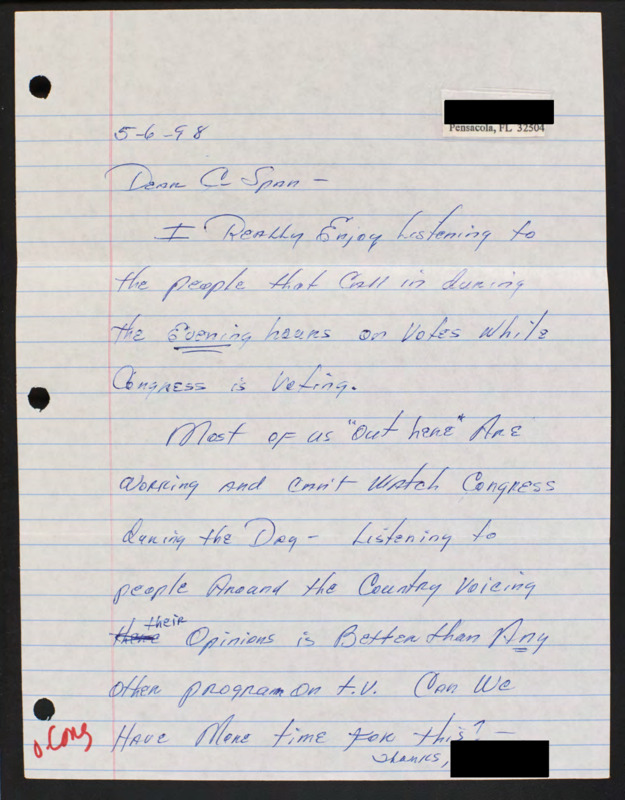 Pensacola, FL 32504
5-6-98
Dear C-Span -
I Really Enjoy Listening to
the people that Call in during
the Evening hours on Votes while
Congress is Voting.
Most of us "out here" Are
working and can't Watch Congress
during the Day - Listening to
people Around the Country Voicing
there their Opinions is Better than Any
other program on t.v. Can We
Have More time for this? -
Thanks,
o.Cong